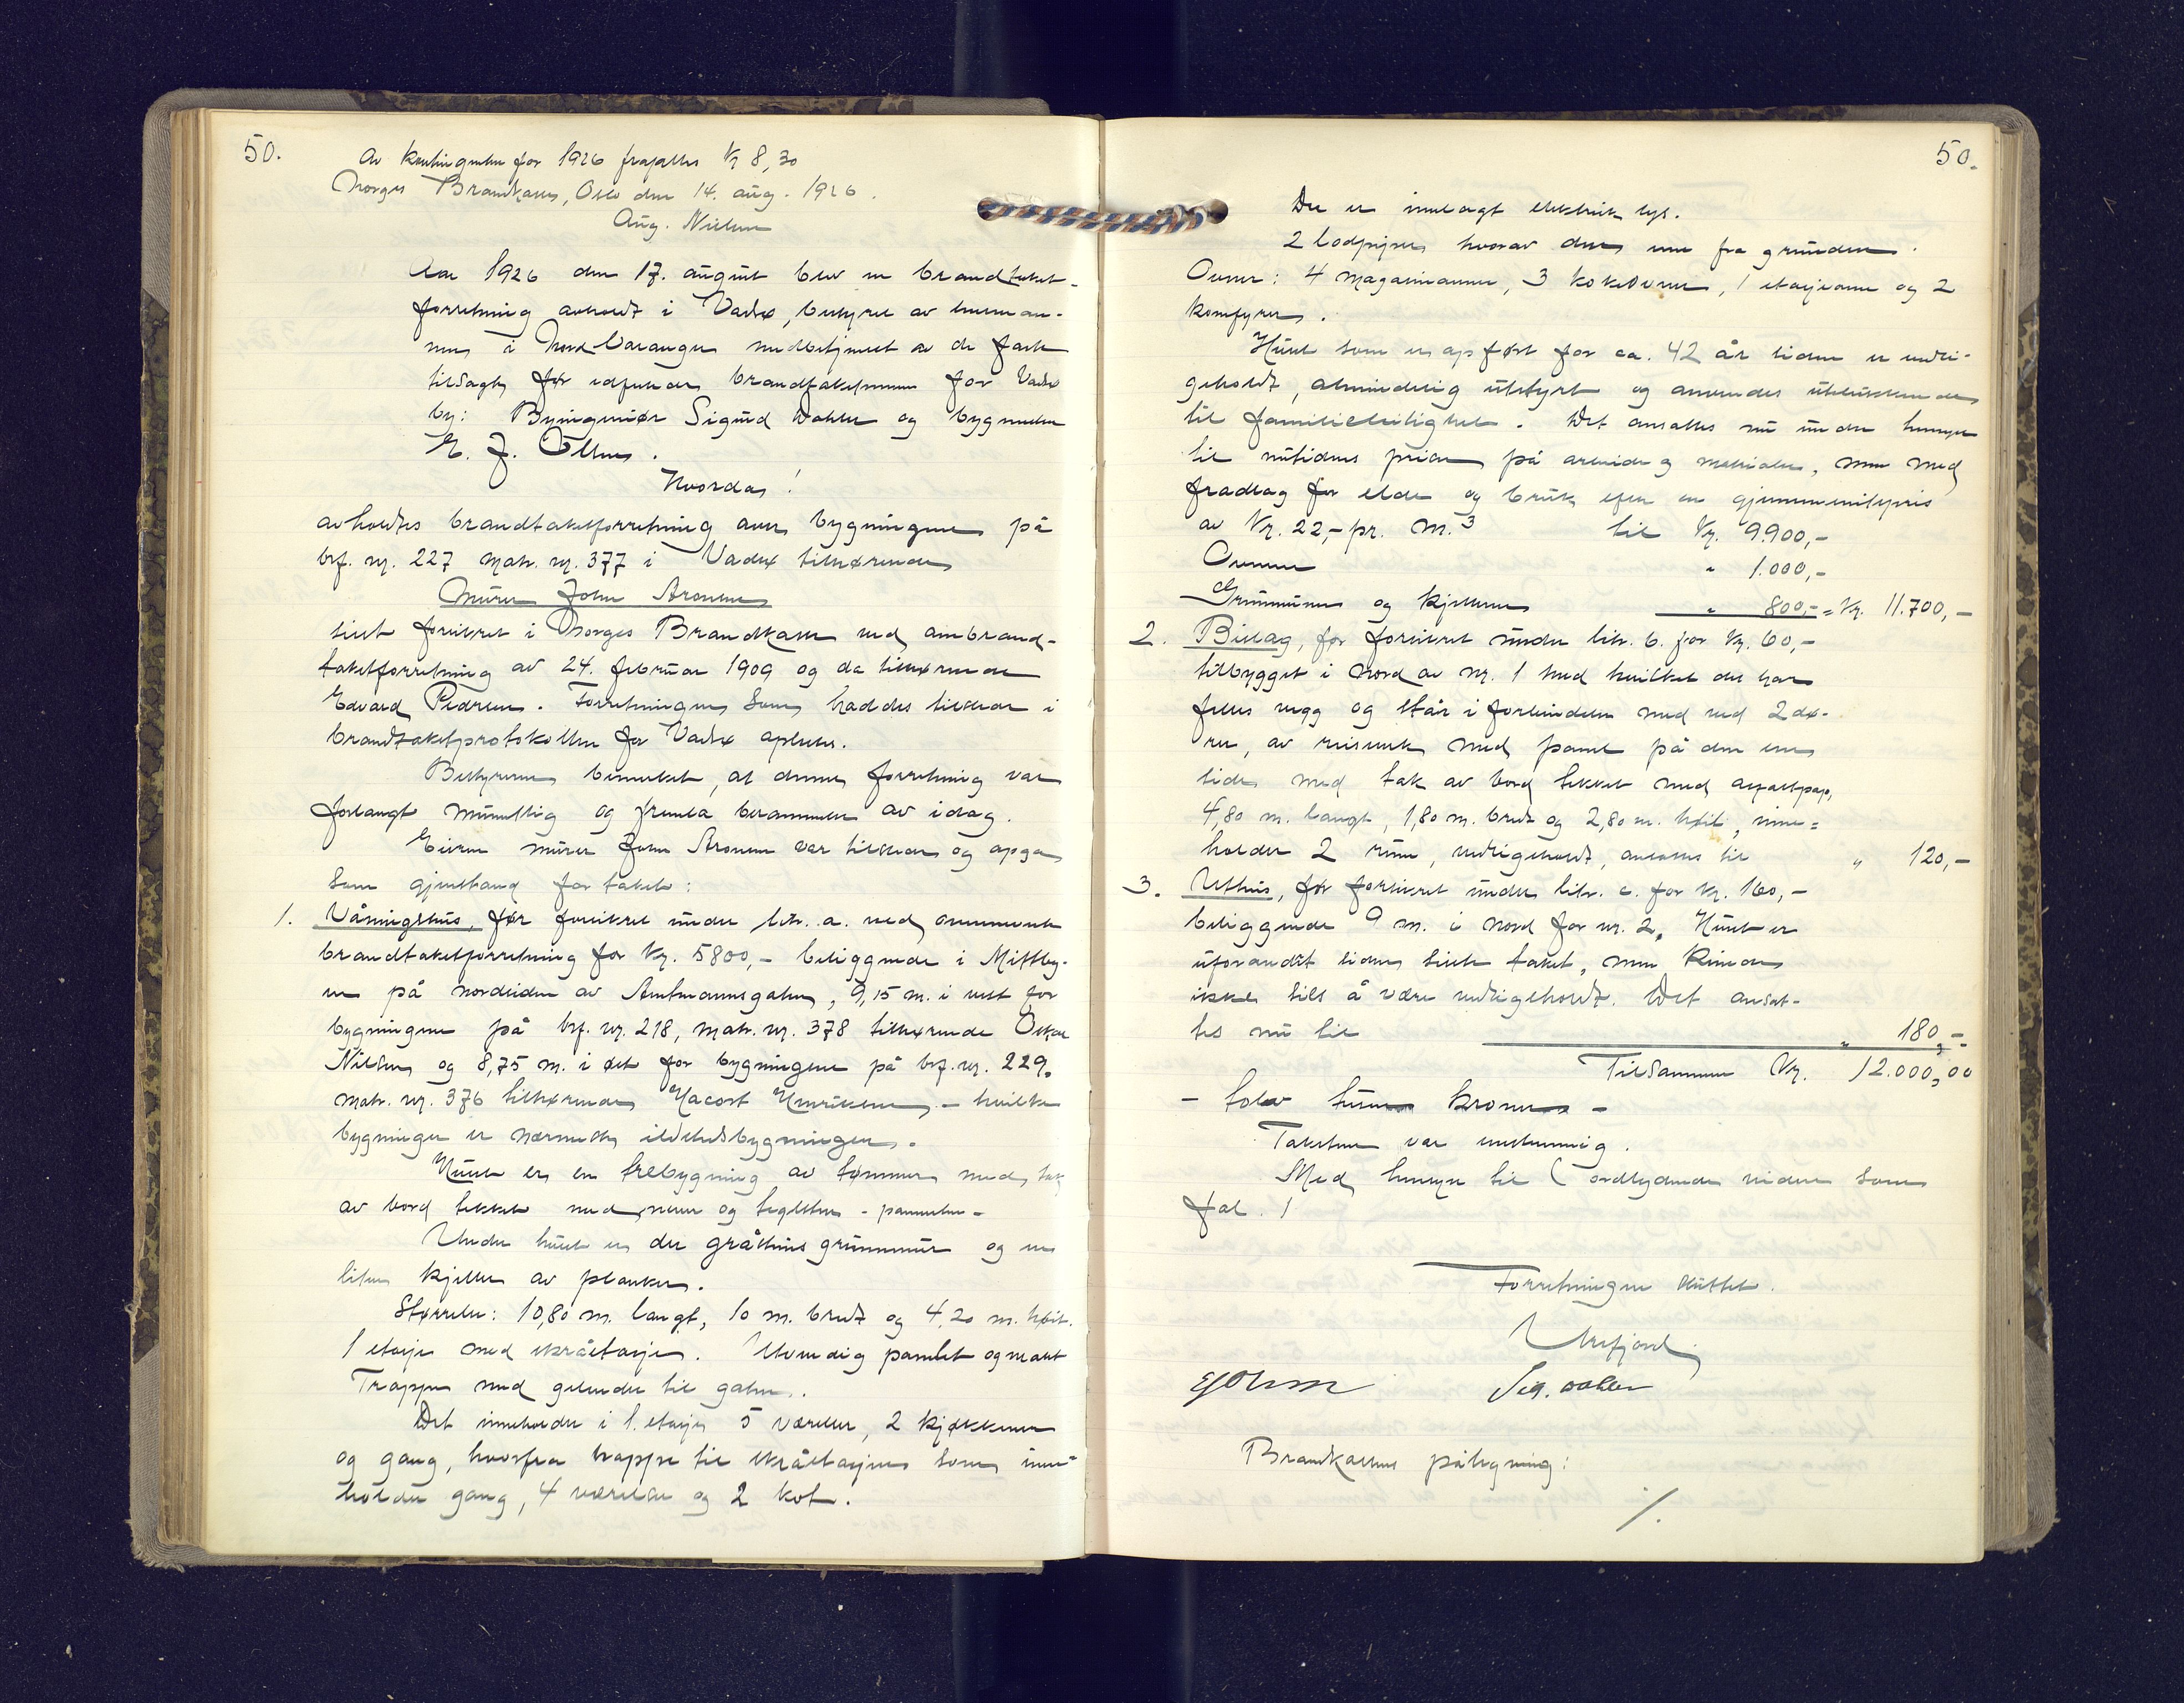 50.
Av kontingenten for 1926 frafaltes Kr 8,30
Norges Brandkasse, Oslo den 14. aug. 1926.
Aug. Nielsen
Aar 1926 den 17. august blev en brandtakst-
forretning avholdt i Vadsø, bestyret av lensman-
nen i Nord Varanger medbetjenet av de fast
tilsagte før edfæstede brandtakstmenn for Vadsø
by: Byingeniør Sigurd Dahler og bygmester
E. J. Olsen.
Hvorda!
avholdtes brandtakstforretning over bygningene på
brf. nr. 227 matr. nr. 377 i Vadsø tilhørende
Murer John Aronsen
sist forsikret i Norges Brandkasse ved ombrand-
takstforretning av 24. februar 1909 og da tilhørende
Edvard Pedersen. Forretningen som haddes tilstede i
brandtakstprotokollen for Vadsø oplæstes.
Bestyreren bemerket, at denne forretning var
forlangt mundtlig og fremla berammelse av idag.
Eieren murer John Aronsen var tilstede og opga
som gjenstand for takst:
1. Våningshus, før forsikret under litr. a. ved ovennevnte
brandtakstforretning for Kr. 5800,- beliggende i Midtby-
en på nordsiden av Amtmannsgaten, 9,15 m. i vest for
bygningene på brf. nr. 218, matr. nr. 378 tilhørende Oskar
Nilsen og 8,75 m. i øst for bygningene på brf. nr. 229.
matr. nr. 376 tilhørende Henriksen, - hvilke
bygninger er nærmeste ildstedsbygninger.
Huset er en trebygning av tømmer med tak
av bord tekket med never og teglsten - pannesten -
Under huset er der gråstens grunnmur og en
liten kjeller av planker.
Størrelse: 10,80 m. langt, 10 m. bredt og 4,20 m. høit.
1 etasje med skråetasje. Utvendig panelt og malt
Trappe med gelender til gaten.
Det inneholder i 1. etasje 5 værelser, 2 kjøkkener
og gang, hvorfra trappe til skråetasjen som inne-
holder gang, 4 værelser og 2 kot.
50.
Der er innlagt elektrisk lys.
2 lodpiper, hvorav den ene fra grunden.
Ovner: 4 magasinovner, 3 kokeovner, 1 etasjeovn og 2
komfyrer.
Huset som er opført for ca. 42 år siden er vedli-
geholdt, almindelig utstyrt og anvendes utelukkende
til familieleilighet. Det ansattes nu under hensyn
til nutidens priser på arbeide og materialer, men med
fradrag for elde og bruk efter en gjennemsnitspris
av Kr. 22,- pr. m.3 til Kr. 9.900,-
Ovnene " 1.000,-
Grunnmuren og kjelleren " 800,- = Kr. 11.700,-
2. Bislag, før forsikret under litr. b. for Kr. 60,-
tilbygget i nord av nr. 1 med hvilket det har
felles vegg og står i forbindelse med ved 2 dø-
rer, av reisverk med panel på den ene
side med tak av bord tekket med asfaltpap,
4,80 m. langt, 1,80 m. bredt og 2,80 m. høit, inne-
holder 2 rum, vedligeholdt, ansattes til " 120,-
3. Uthus, før forsikret under litr. c. for Kr. 160,-
beliggende 9 m. i nord for nr. 2. Huset er
uforandret siden siste takst, men kunde
ikke siles å være vedligeholdt. Det ansat-
tes nu til " 180,-
Tilsammen Kr. 12.000,00
- tolv tusen kroner -
Taksten var enstemmig.
Med hensyn til (ordlydende videre som
fol. 1
Forretningen sluttet.
Urefjord
EJOlsen Sig. Dahler
Brandkassens påtegning:
/.